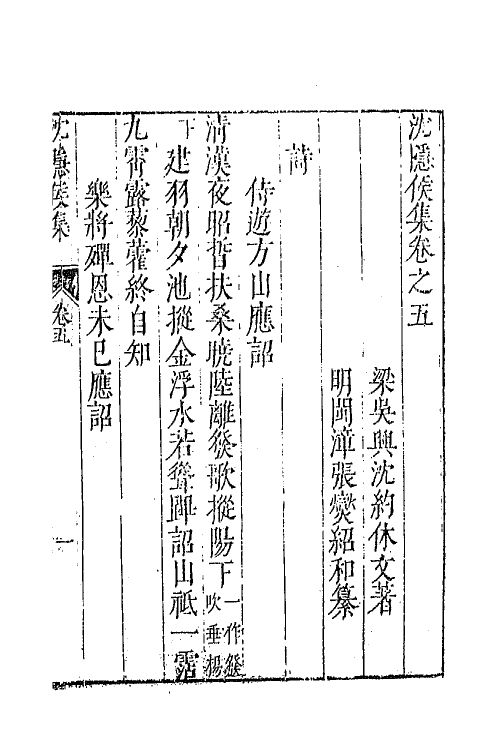 沈隱侯集卷之五
梁吳興沈約休文著
明閩漳張燮紹和纂
詩
侍遊方山應詔
清漢夜昭晳扶桑曉陸離發歌摐陽下一作繇吹垂楊
下建羽朝夕池摐金浮水若聳蹕詔山祇一霑
九霄露藜藿終自知
樂將殫恩未已應詔
沈隱侯集
卷五
一